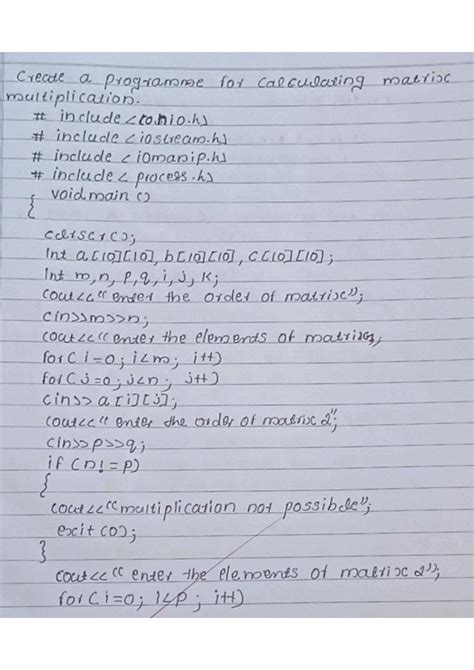 Create a programme for calculating matrix
multiplication.
# include <conio.h>
# include <iostream.h>
# include <iomanip.h>
# include < process.h>
void main ()
{
clrscr();
Int a[10][10], b[10][10], c[10][10];
Int m,n, p,q, i, j, k;
cout<<"enter the order of matrix";
cin>>m>>n;
cout<<"enter the elements of matrix
for( i=0; i<m; i++)
for( j=0; j<n; j++)
cin>> a[i][j];
cout<<"enter the order of matrix 2";
cin>>p>>q;
if (n!=p)
{
cout<<"multiplication not possible";
exit(0);
}
cout<<"enter the elements of matrix 2";
for( i=0; i<p; i++)